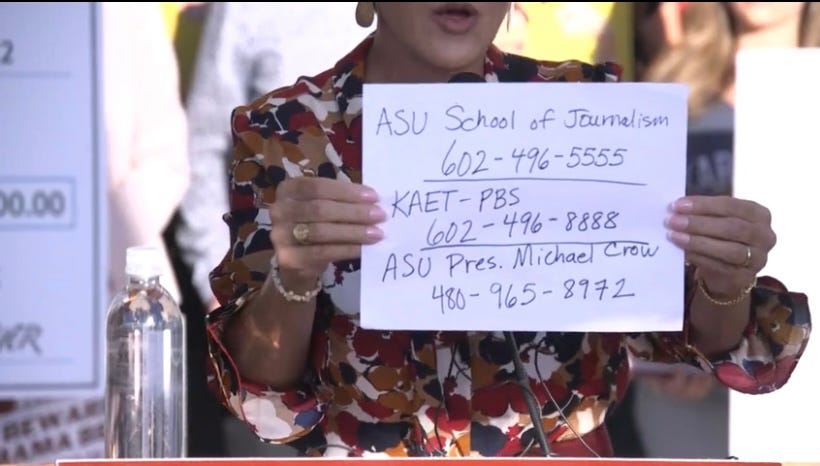 2
00.00
ASU School of Journalism
602-496-5555
KAET-PBS
602-496-8888
ASU Pres. Michael Crow
480-965-8972